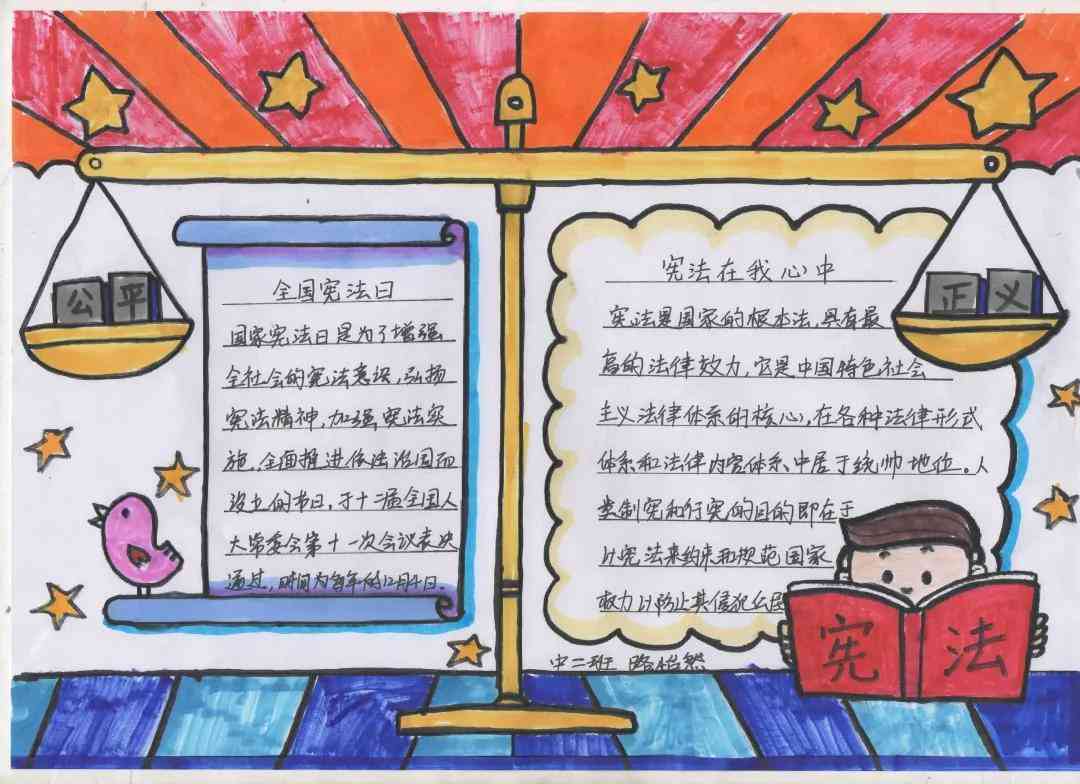 公平
正义
全国宪法日
国家宪法日是为了增强
全社会的宪法意识,弘扬
宪法精神,加强宪法实
施,全面推进依法治国而
设立的节日,于十二届全国人
大常委会第十一次会议表决
通过,时间为每年的12月4日。
宪法在我心中
宪法是国家的根本法,具有最
高的法律效力,它是中国特色社会
主义法律体系的核心,在各种法律形式
体系和法律内容体系中居于统帅地位。人
类制宪和行宪的目的即在于
以宪法来约束和规范国家
权力以防止其侵犯公民
中二班 路怡然
宪法